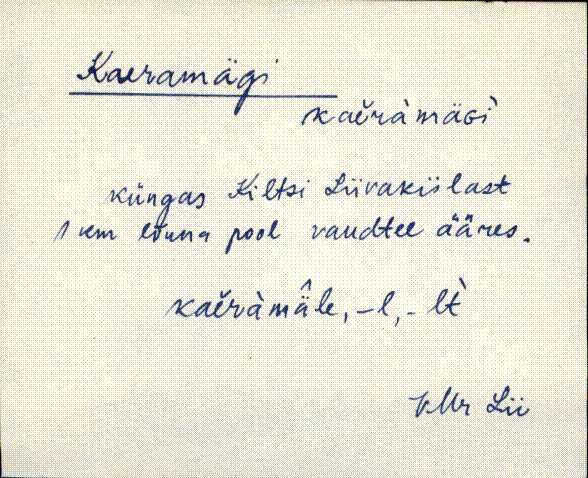 Kaeramägi
kaèràmäGì
küngas Kiltsi Liivakülast
1 km lõuna pool raudtee ääres.
kaèràmä̂le, -l, -lt̀
VMr Lii